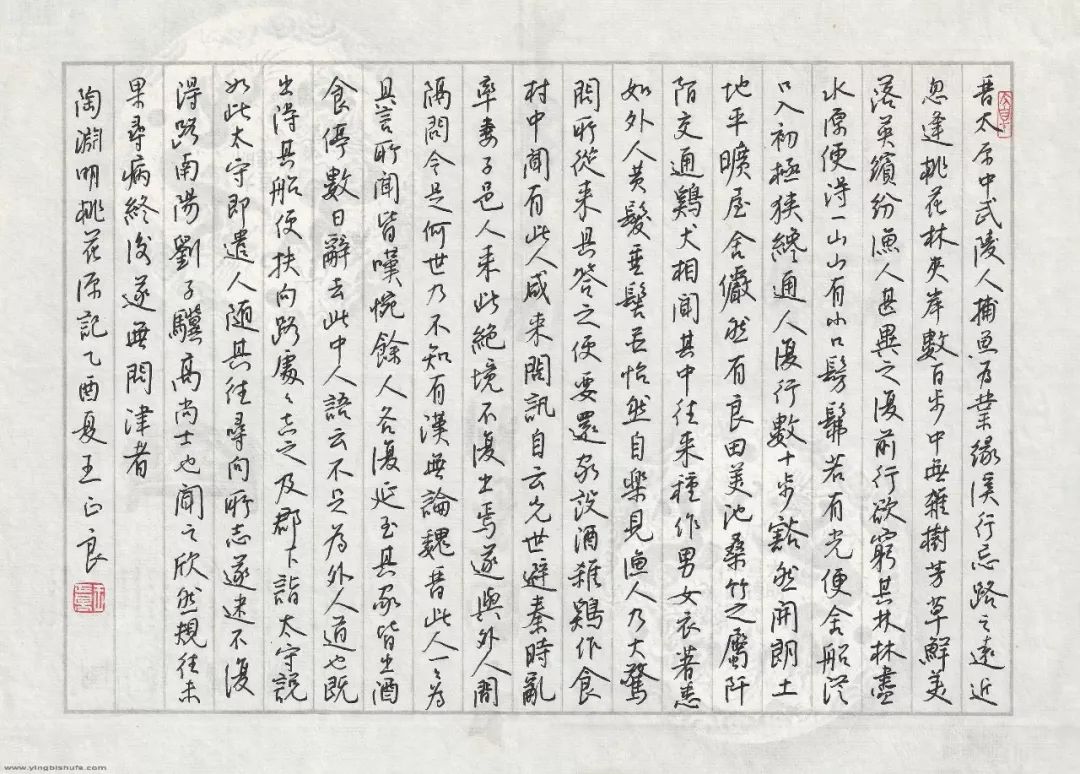 晋太原中武陵人捕鱼为業缘溪行忘路之遠近
忽逢桃花林夹岸數百步中無雜樹芳草鮮美
落英繽紛漁人甚異之復前行欲窮其林林盡
水源便得一山山有小口髣髴若有光便舍船從
口入初極狭纔通人復行數十步豁然開朗土
地平曠屋舍儼然有良田美池桑竹之屬阡
陌交通鷄犬相聞其中往来種作男女衣著悉
如外人黄髮垂髫並怡然自樂見漁人乃大驚
問所從来具答之便要還家設酒雜鷄作食
村中聞有此人咸来問訊自云先世避秦時亂
率妻子邑人来此絶境不復出焉遂與外人間
隔問今是何世乃不知有漢無論魏晋此人一々為
具言所聞皆嘆惋餘人各復延至其家皆出酒
食停數日辭去此中人語云不足為外人道也既
出得其船便扶向路處々志之及郡下詣太守説
如此太守即遣人随其往尋向所志遂迷不復
得路南陽劉子驥高尚士也聞之欣然規往未
果尋病終後遂無問津者
陶淵明桃花源記乙酉夏王正良
www.yingbishufa.com